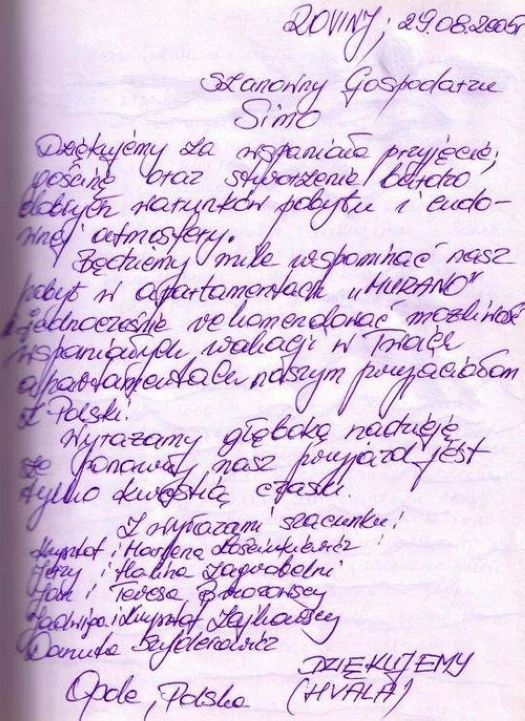 ROVINJ, 29.08.2005r
Szanowny Gospodarzu
Simo
Dziękujemy za wspaniałe przyjęcie,
gościnę oraz stworzenie bardzo
dobrych warunków pobytu i cudo-
wnej atmosfery.
Będziemy mile wspominać nasz
pobyt w apartamentach „MURANO"
i jednocześnie rekomendować możliwość
wspaniałych wakacji w Twoich
apartamentach naszym przyjaciołom
z Polski.
Wyrażamy głęboką nadzieję
że ponowny nasz przyjazd jest
tylko kwestią czasu.
Z wyrazami szacunku!
Krzysztof i Marlena
Jerzy i Halina Zagrobelni
Jan i Teresa Brzozowscy
Jadwiga i Krzysztof Zajkowscy
Danuta Szyderowicz
DZIĘKUJEMY
Opole, Polska (HVALA)